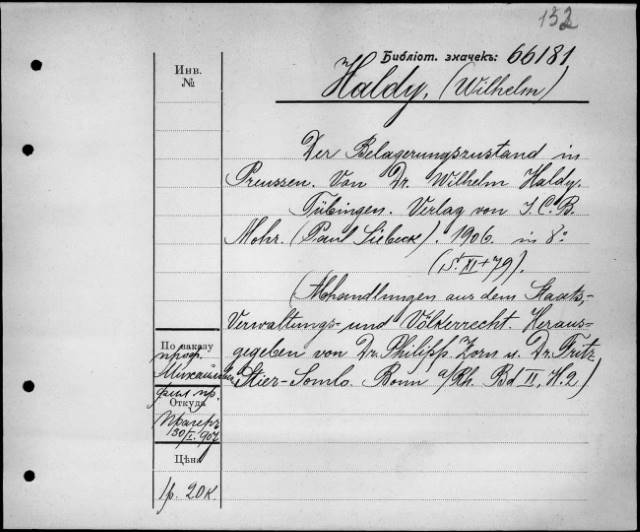 132
Библіот. значекъ: 66181
Инв.
№
Haldy, (Wilhelm)
Der Belagerungszustand in
Preussen. Von Dr. Wilhelm Haldy.
Tübingen. Verlag von J. C. B.
Mohr. (Paul Siebeck). 1906. in 8°
(S. XI + 79).
(Abhandlungen aus dem Staats-,
Verwaltungs- und Völkerrecht. Heraus-
gegeben von Dr. Philipp Zorn u. Dr. Fritz
Stier-Somlo. Bonn a/Rh. Bd II, H. 2)
По заказу
проф.
Михайлова
Откуда
Прагеръ
30/I. 907
Цѣна
1 р. 20 к.